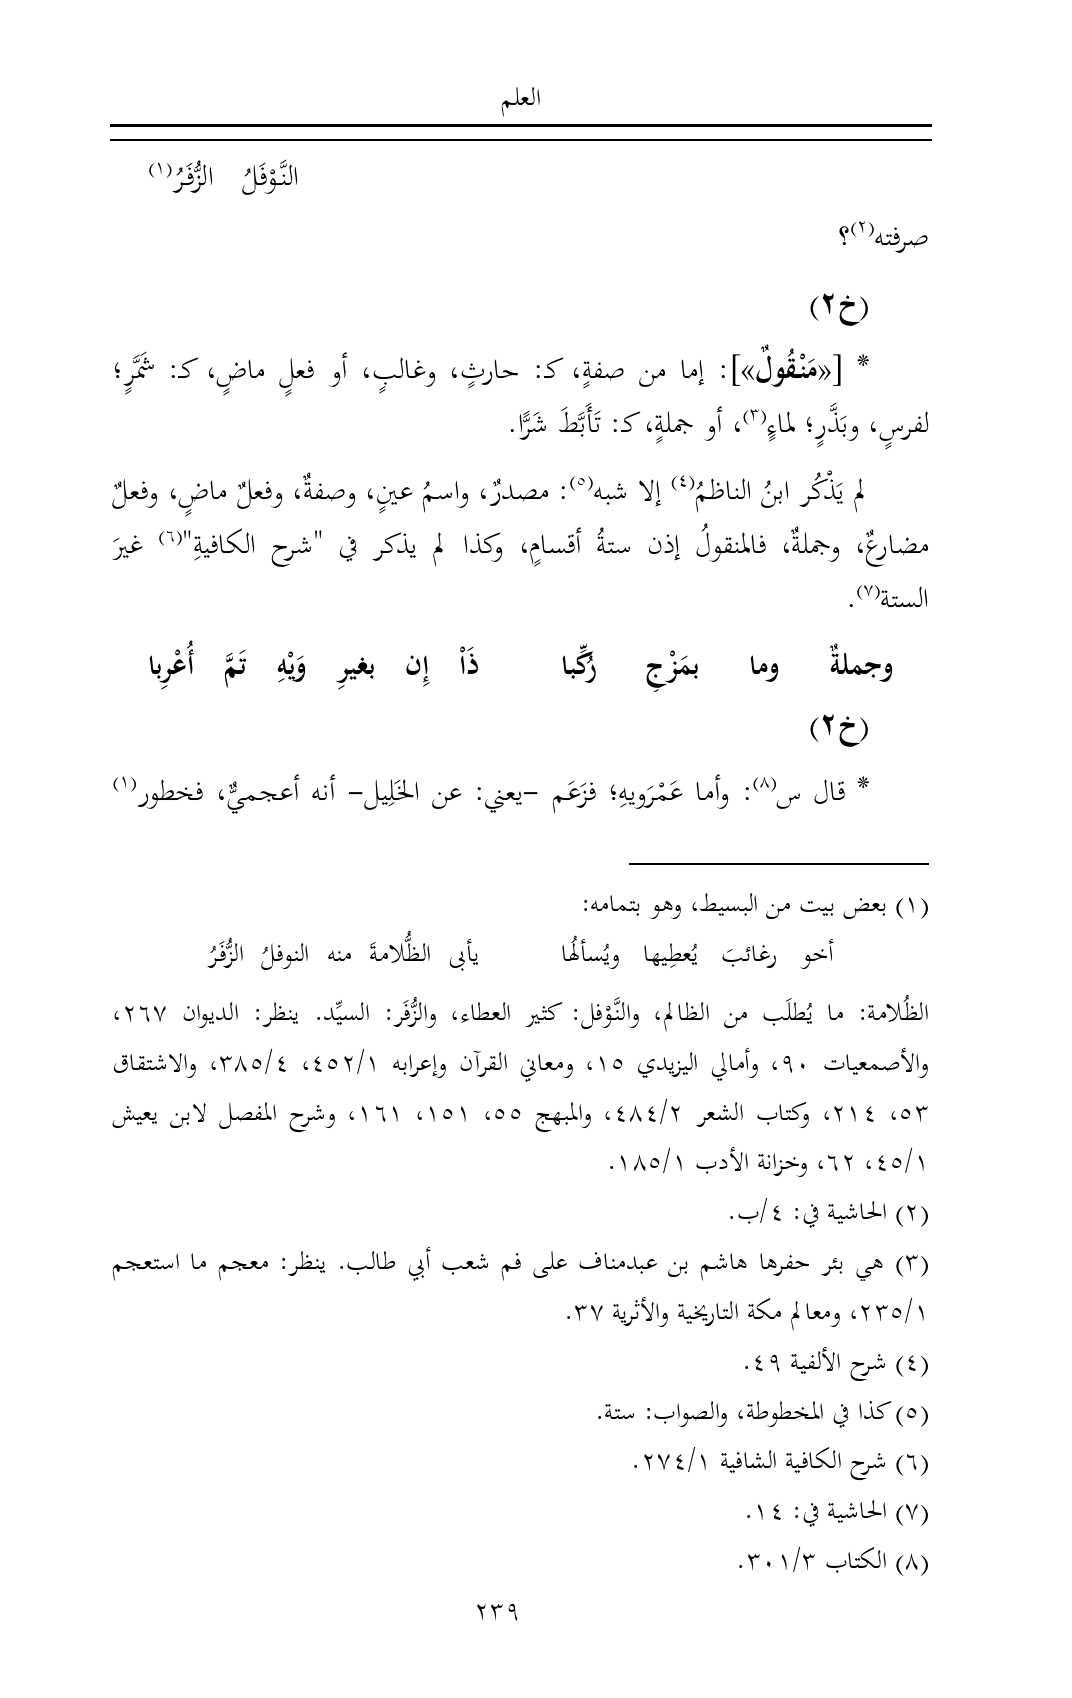 العلم
النَّوْفَلُ الزُّفَرُ(١)
صرفته(٢)؟
(خ٢)
* [«مَنْقُولٌ»]: إما من صفةٍ، كـ: حارثٍ، وغالبٍ، أو فعلٍ ماضٍ، كـ: شَمَّرٍ؛
لفرسٍ، وبَذَّرٍ؛ لماءٍ(٣)، أو جملةٍ، كـ: تَأَبَّطَ شَرًّا.
لم يَذْكُر ابنُ الناظمُ(٤) إلا شبه(٥): مصدرٌ، واسمُ عينٍ، وصفةٌ، وفعلٌ ماضٍ، وفعلٌ
مضارعٌ، وجملةٌ، فالمنقولُ إذن ستةُ أقسامٍ، وكذا لم يذكر في "شرح الكافيةِ"(٦) غيرَ
الستة(٧).
وجملةٌ وما بمَزْجِ رُكِّبا ذَاْ إِن بغيرِ وَيْهِ تَمَّ أُعْرِبا
(خ٢)
* قال س(٨): وأما عَمْرَويهِ؛ فزَعَم –يعني: عن الخَلِيل– أنه أعجميٌّ، فخطور(١)
(١) بعض بيت من البسيط، وهو بتمامه:
أخو رغائبَ يُعطِيها ويُسألُها يأبى الظُّلامةَ منه النوفلُ الزُّفَرُ
الظُلامة: ما يُطلَب من الظالم، والنَّوْفل: كثير العطاء، والزُّفَر: السيِّد. ينظر: الديوان ٢٦٧،
والأصمعيات ٩٠، وأمالي اليزيدي ١٥، ومعاني القرآن وإعرابه ٤٥٢/١، ٣٨٥/٤، والاشتقاق
٥٣، ٢١٤، وكتاب الشعر ٤٨٤/٢، والمبهج ٥٥، ١٥١، ١٦١، وشرح المفصل لابن يعيش
٤٥/١، ٦٢، وخزانة الأدب ١٨٥/١.
(٢) الحاشية في: ٤/ب.
(٣) هي بئر حفرها هاشم بن عبدمناف على فم شعب أبي طالب. ينظر: معجم ما استعجم
٢٣٥/١، ومعالم مكة التاريخية والأثرية ٣٧.
(٤) شرح الألفية ٤٩.
(٥) كذا في المخطوطة، والصواب: ستة.
(٦) شرح الكافية الشافية ٢٧٤/١.
(٧) الحاشية في: ١٤.
(٨) الكتاب ٣٠١/٣.
٢٣٩